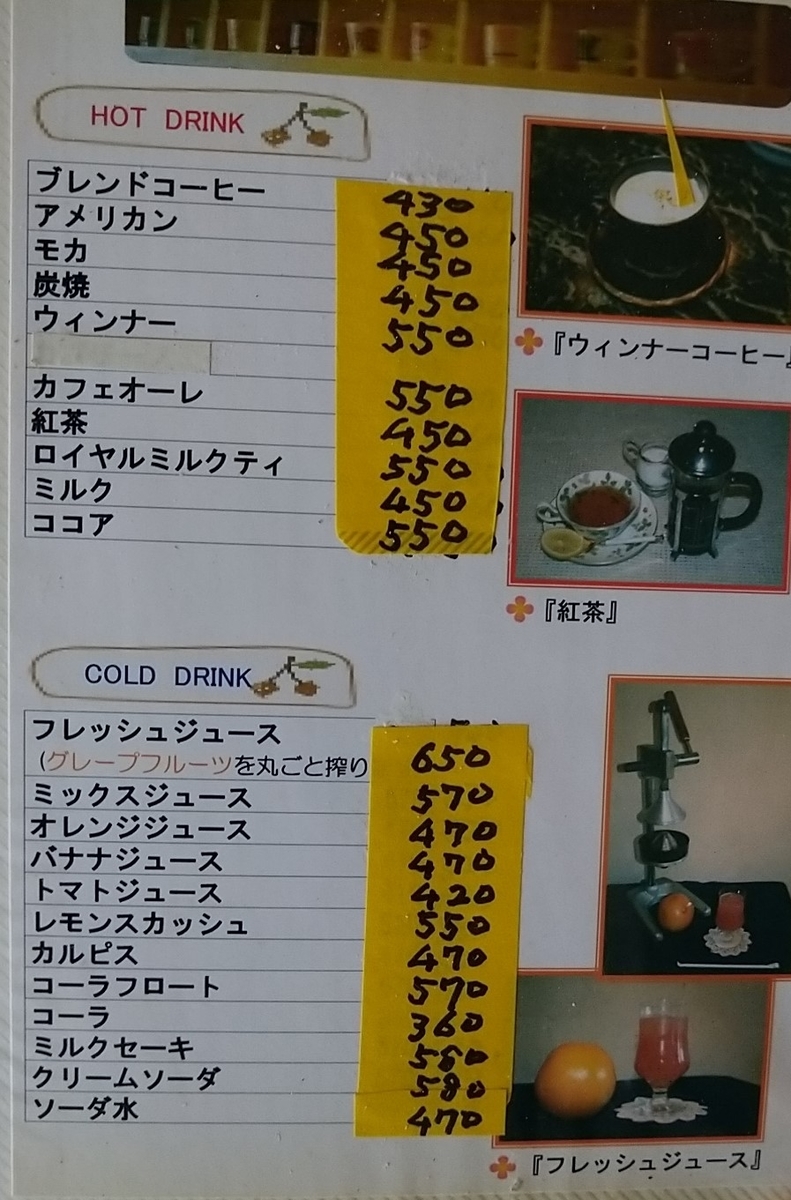 HOT DRINK
ブレンドコーヒー 430
アメリカン 450
モカ 450
炭焼 450
ウィンナー 550
カフェオーレ 550
紅茶 450
ロイヤルミルクティ 550
ミルク 450
ココア 550
『ウィンナーコーヒー』
『紅茶』
COLD DRINK
フレッシュジュース 650
(グレープフルーツを丸ごと搾り
ミックスジュース 570
オレンジジュース 470
バナナジュース 470
トマトジュース 420
レモンスカッシュ 550
カルピス 470
コーラフロート 570
コーラ 360
ミルクセーキ
クリームソーダ 580
ソーダ水 470
『フレッシュジュース』